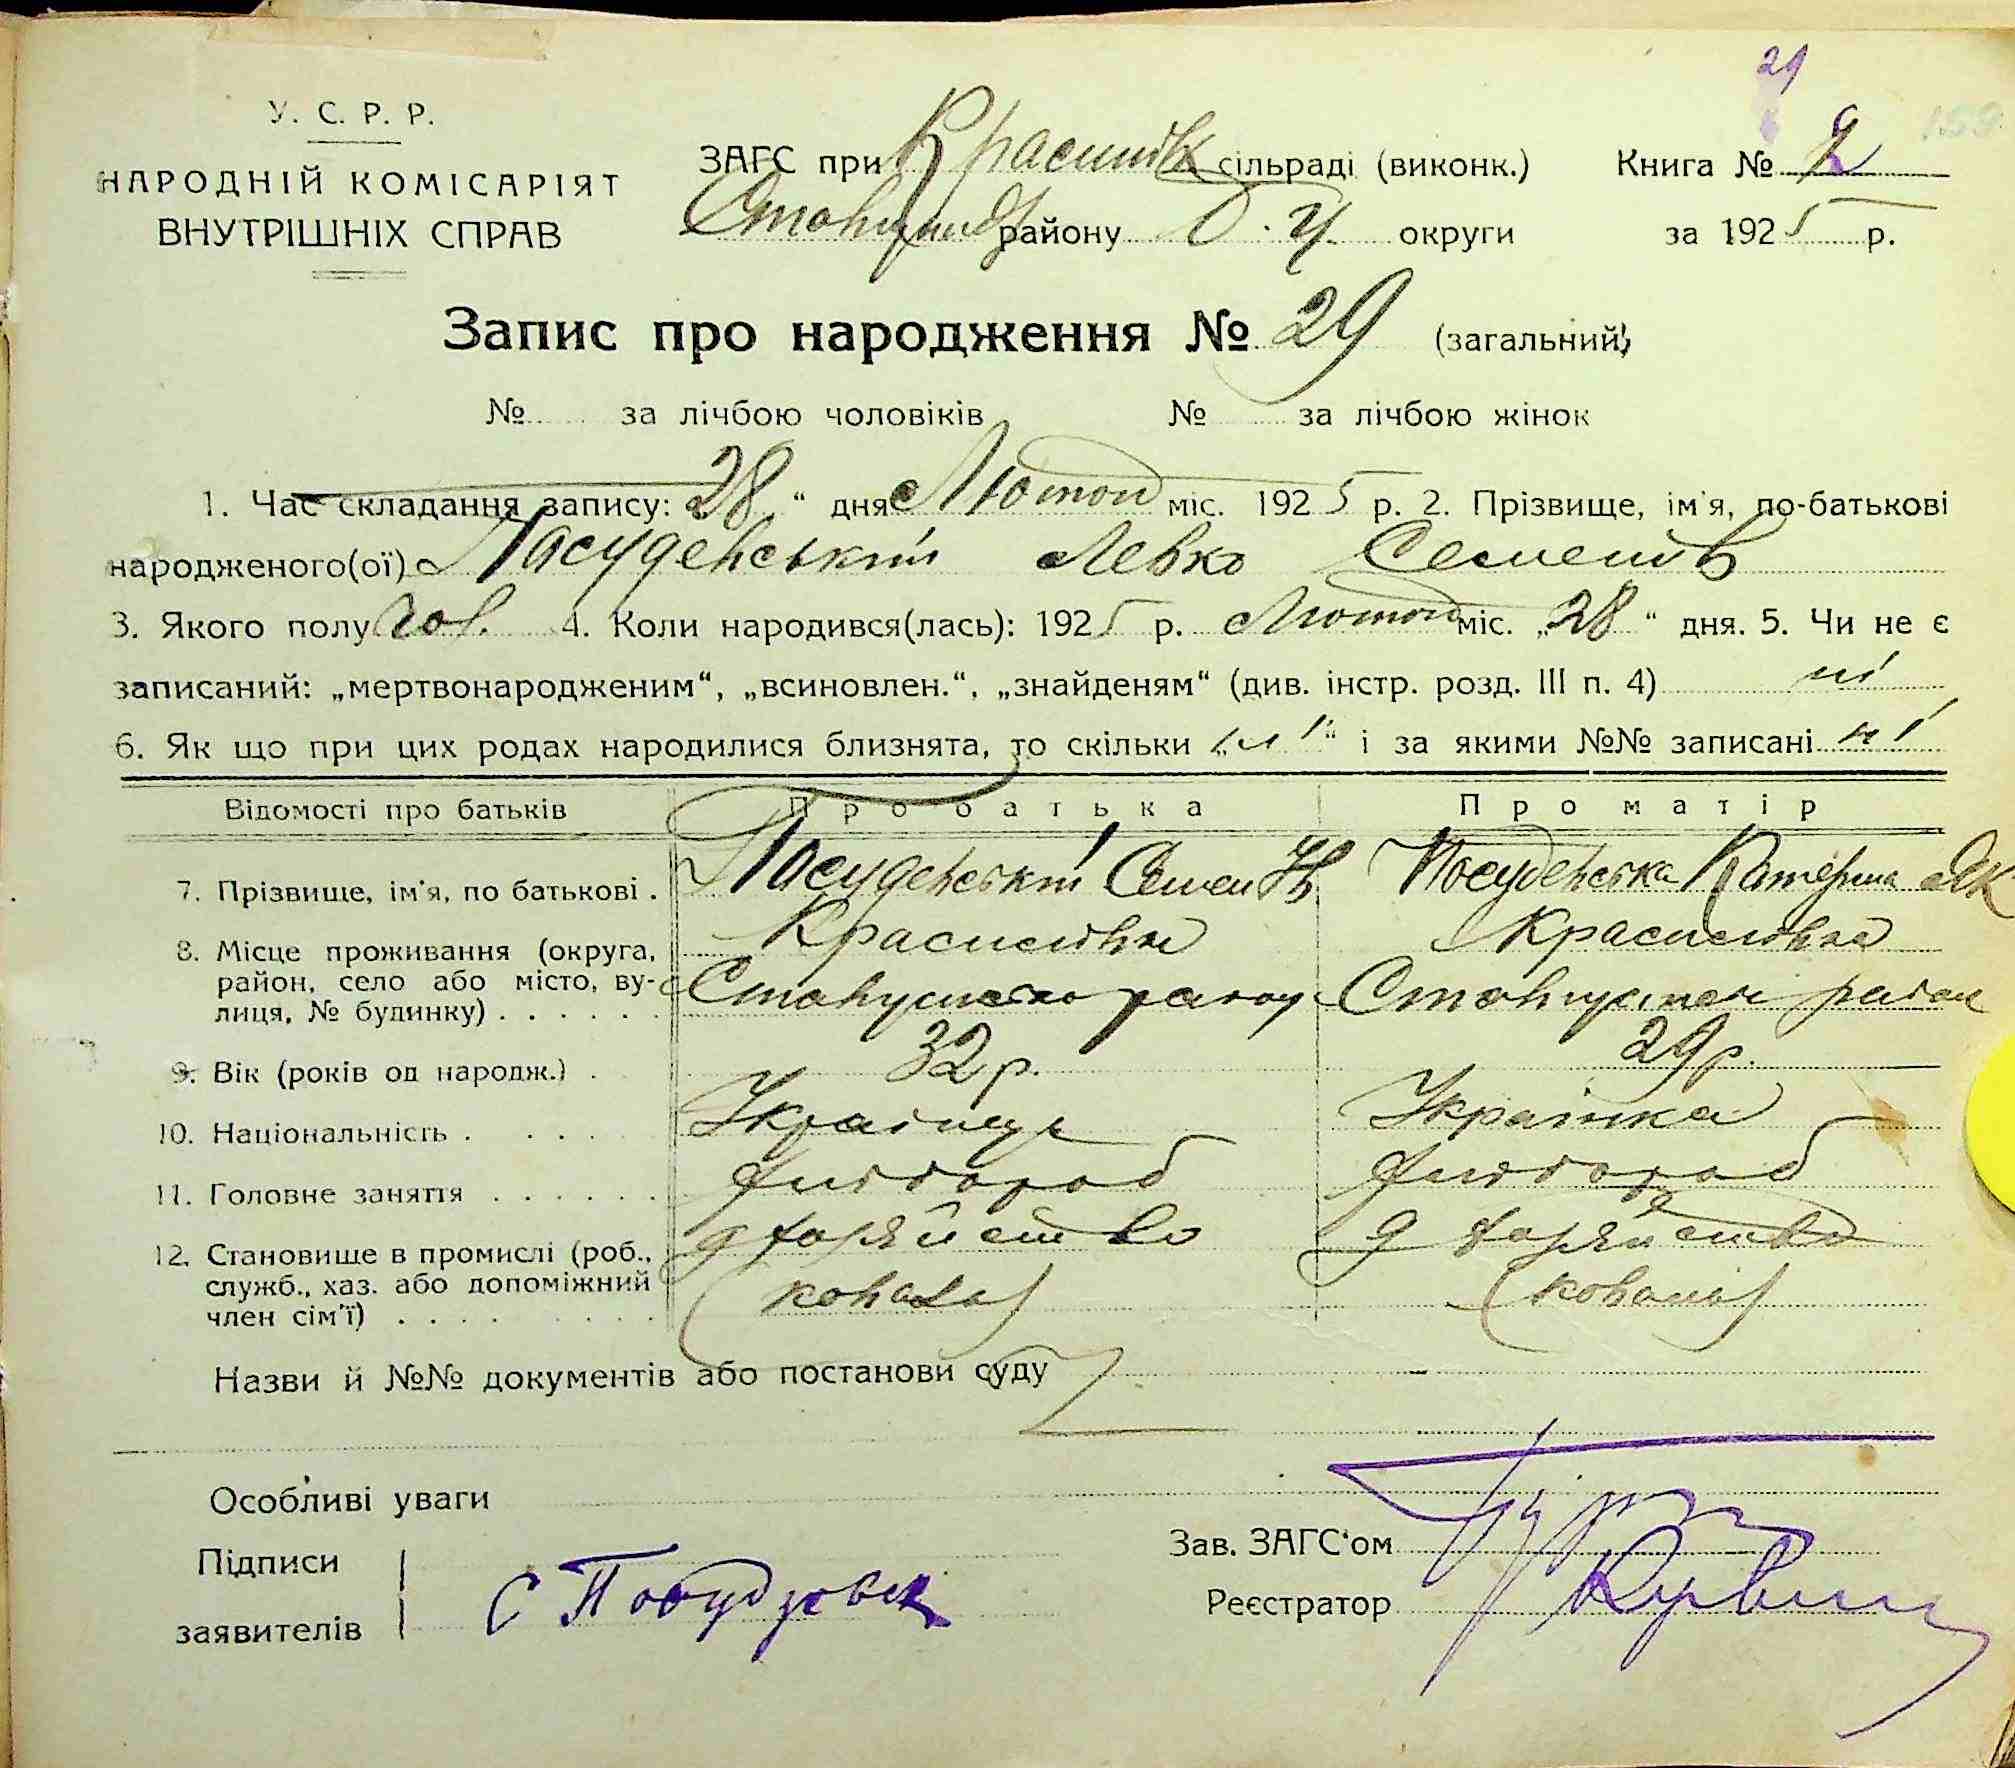 29
У. С. Р. Р.
НАРОДНІЙ КОМІСАРІЯТ
ВНУТРІШНІХ СПРАВ
ЗАГС при Краснів сільраді (виконк.) Книга № 2
району округи за 1925 р.
Запис про народження № 29 (загальний)
№ за лічбою чоловіків № за лічбою жінок
1. Час складання запису: 28 “ дня Лютого міс. 1925 р. 2. Прізвище, ім'я, по-батькові
народженого(ої) Посуденський Левко Семенів
3. Якого полу чол. 4. Коли народився(лась): 1925 р. Лютого міс. „28“ дня. 5. Чи не є
записаний: „мертвонародженим“, „всиновлен.“, „знайденям“ (див. інстр. розд. III п. 4) ні
6. Як що при цих родах народилися близнята, то скільки „ні“ і за якими №№ записані ні
Відомості про батьків Про батька Про матір
7. Прізвище, ім'я, по батькові . Посуденський Семен Ів Посуденська Катерина Як
8. Місце проживання (округа, район, село або місто, вулиця, № будинку) . . . . . .
9. Вік (років од народж.) . 32 р. 29 р.
10. Національність . . . . . Українець Українка
11. Головне заняття . . . . . . хлібороб хлібороб
12. Становище в промислі (роб., служб., хаз. або допоміжний член сім'ї) . . . .
Назви й №№ документів або постанови суду
Особливі уваги
Підписи
заявителів
Зав. ЗАГС'ом
Реєстратор